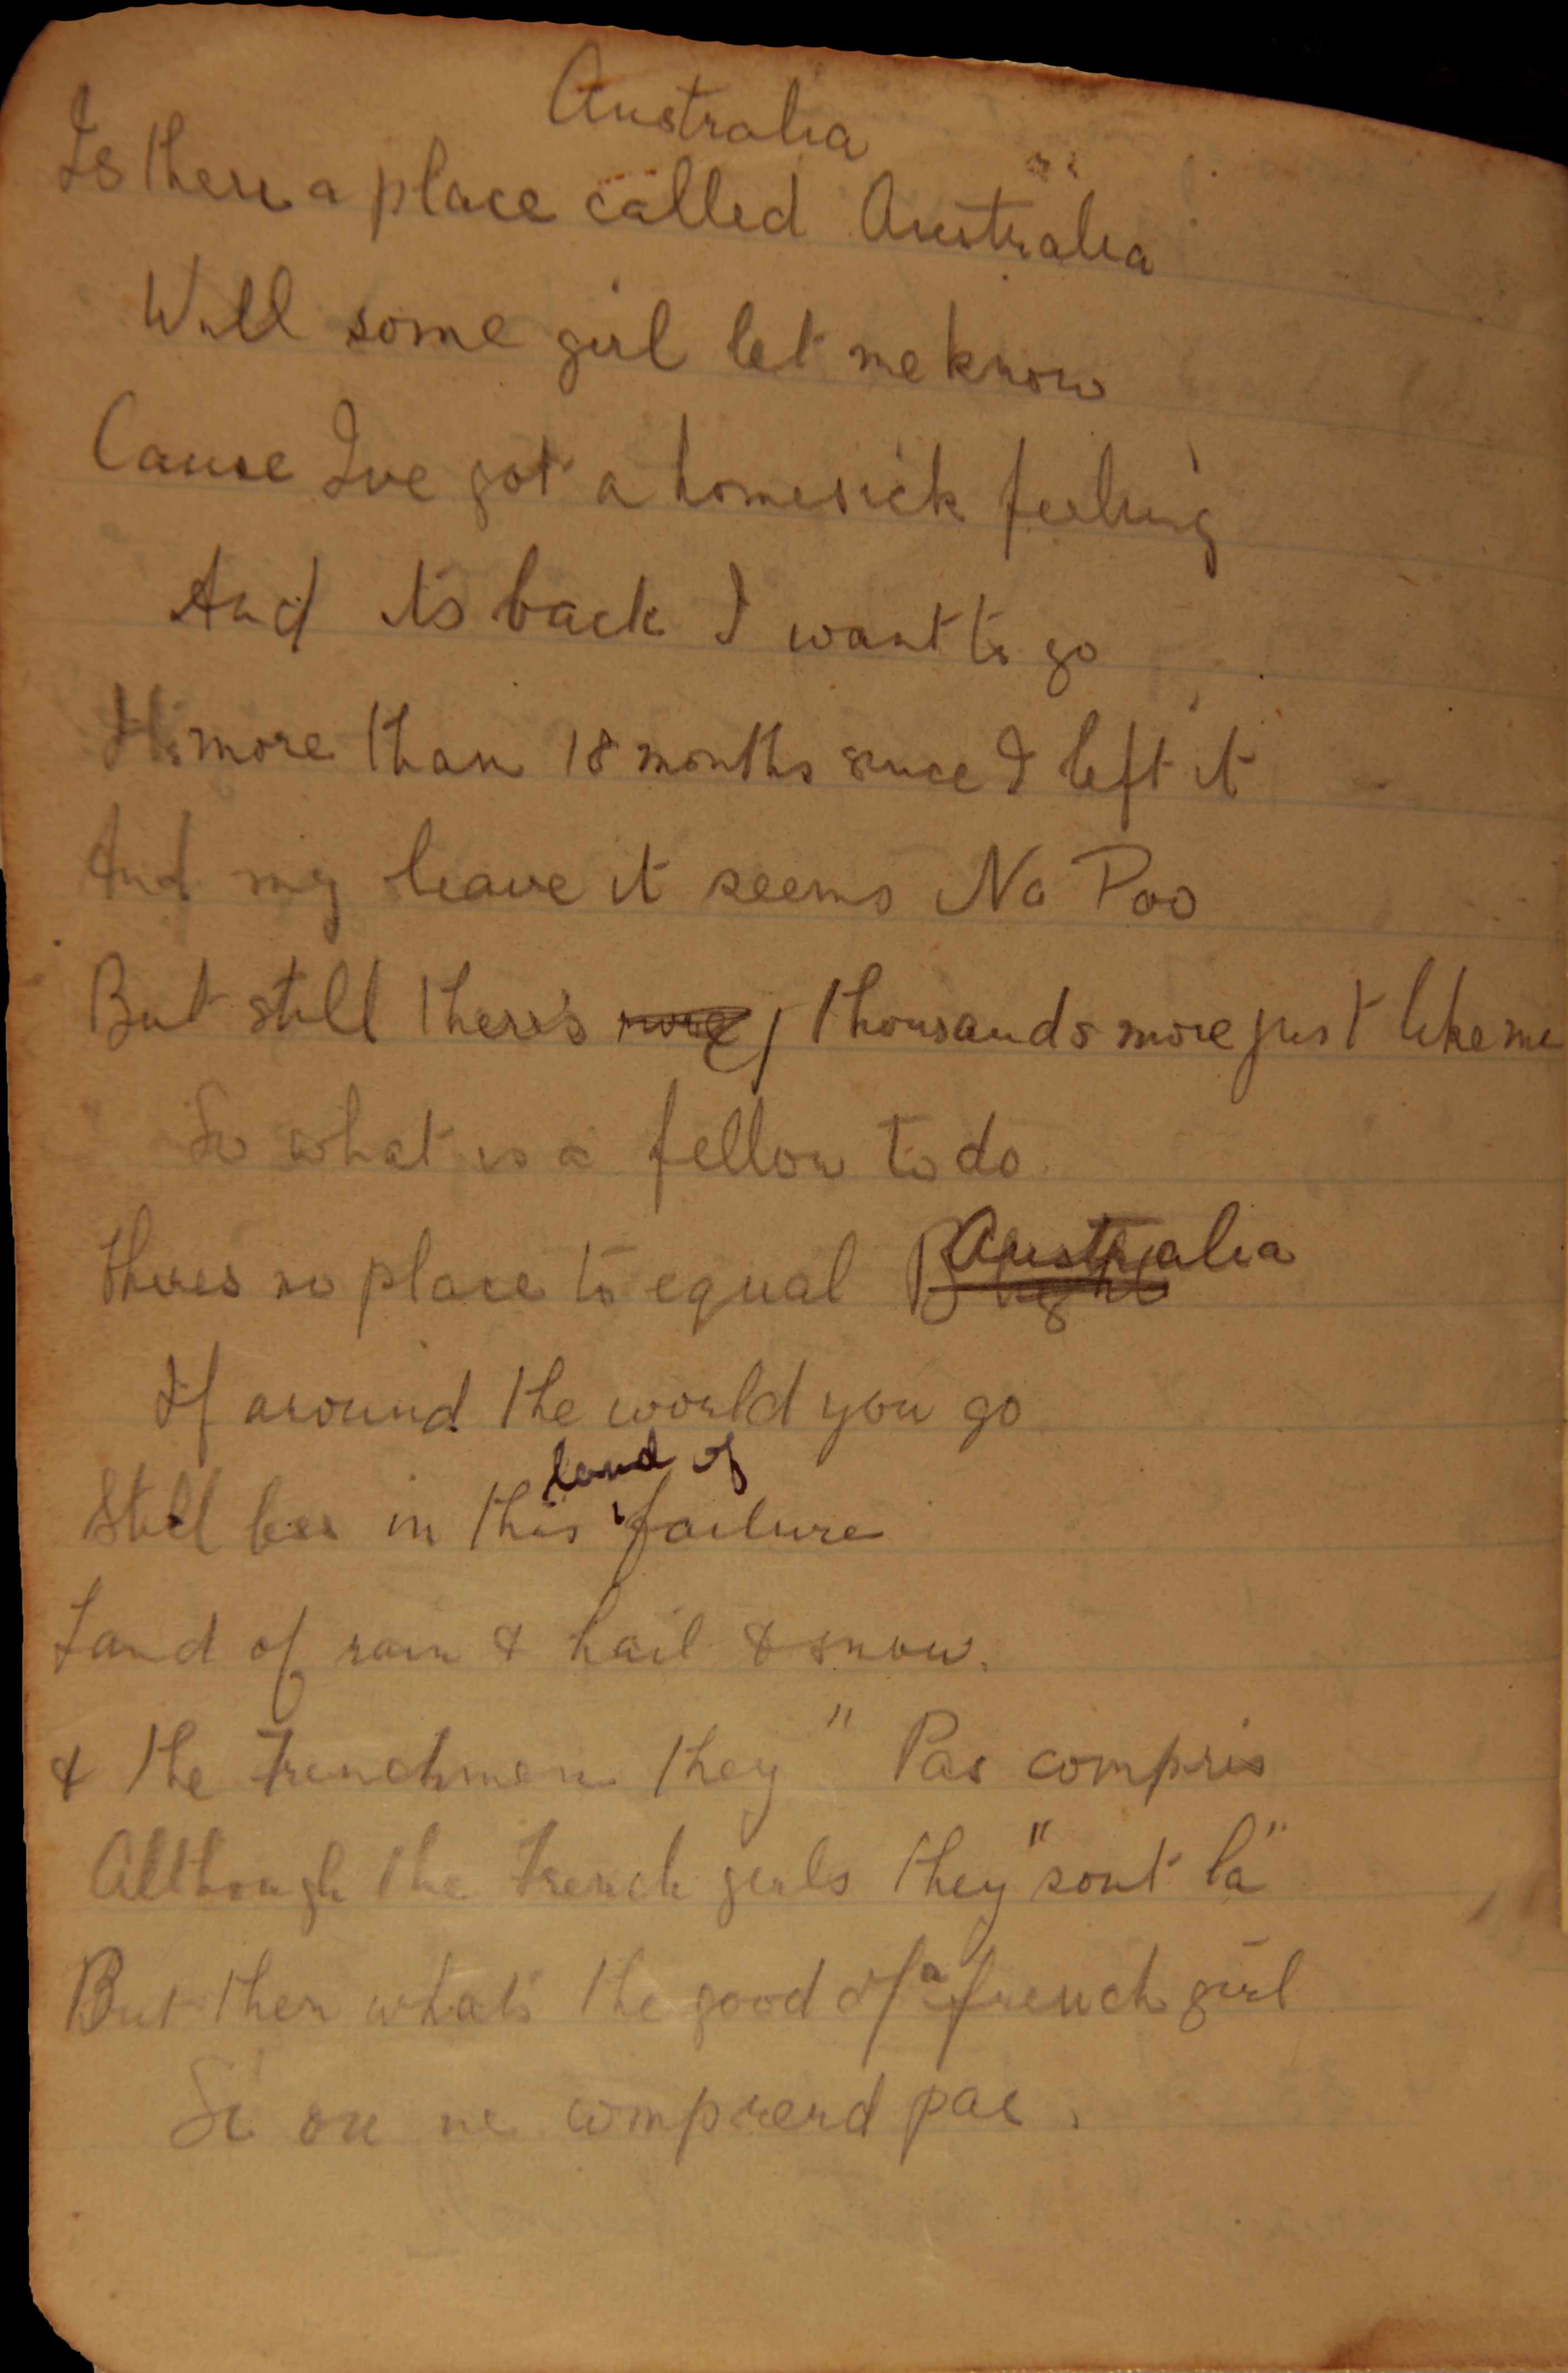 Australia
Is there a place called Australia
Will some girl let me know
Cause Ive got a homesick feeling
And its back I want to go
Its more than 18 months since I left it
And my leave it seems Na Poo
But still there's more thousands more just like me
So what is a fellow to do
Theres no place to equal Australia
If around the world you go
land of
Still in this failure
Land of rain & hail & snow.
& the Frenchmen they " Pas compris
Although the French girls they "sont la"
But then whats the good of a french girl
Si on ne comprend pas.